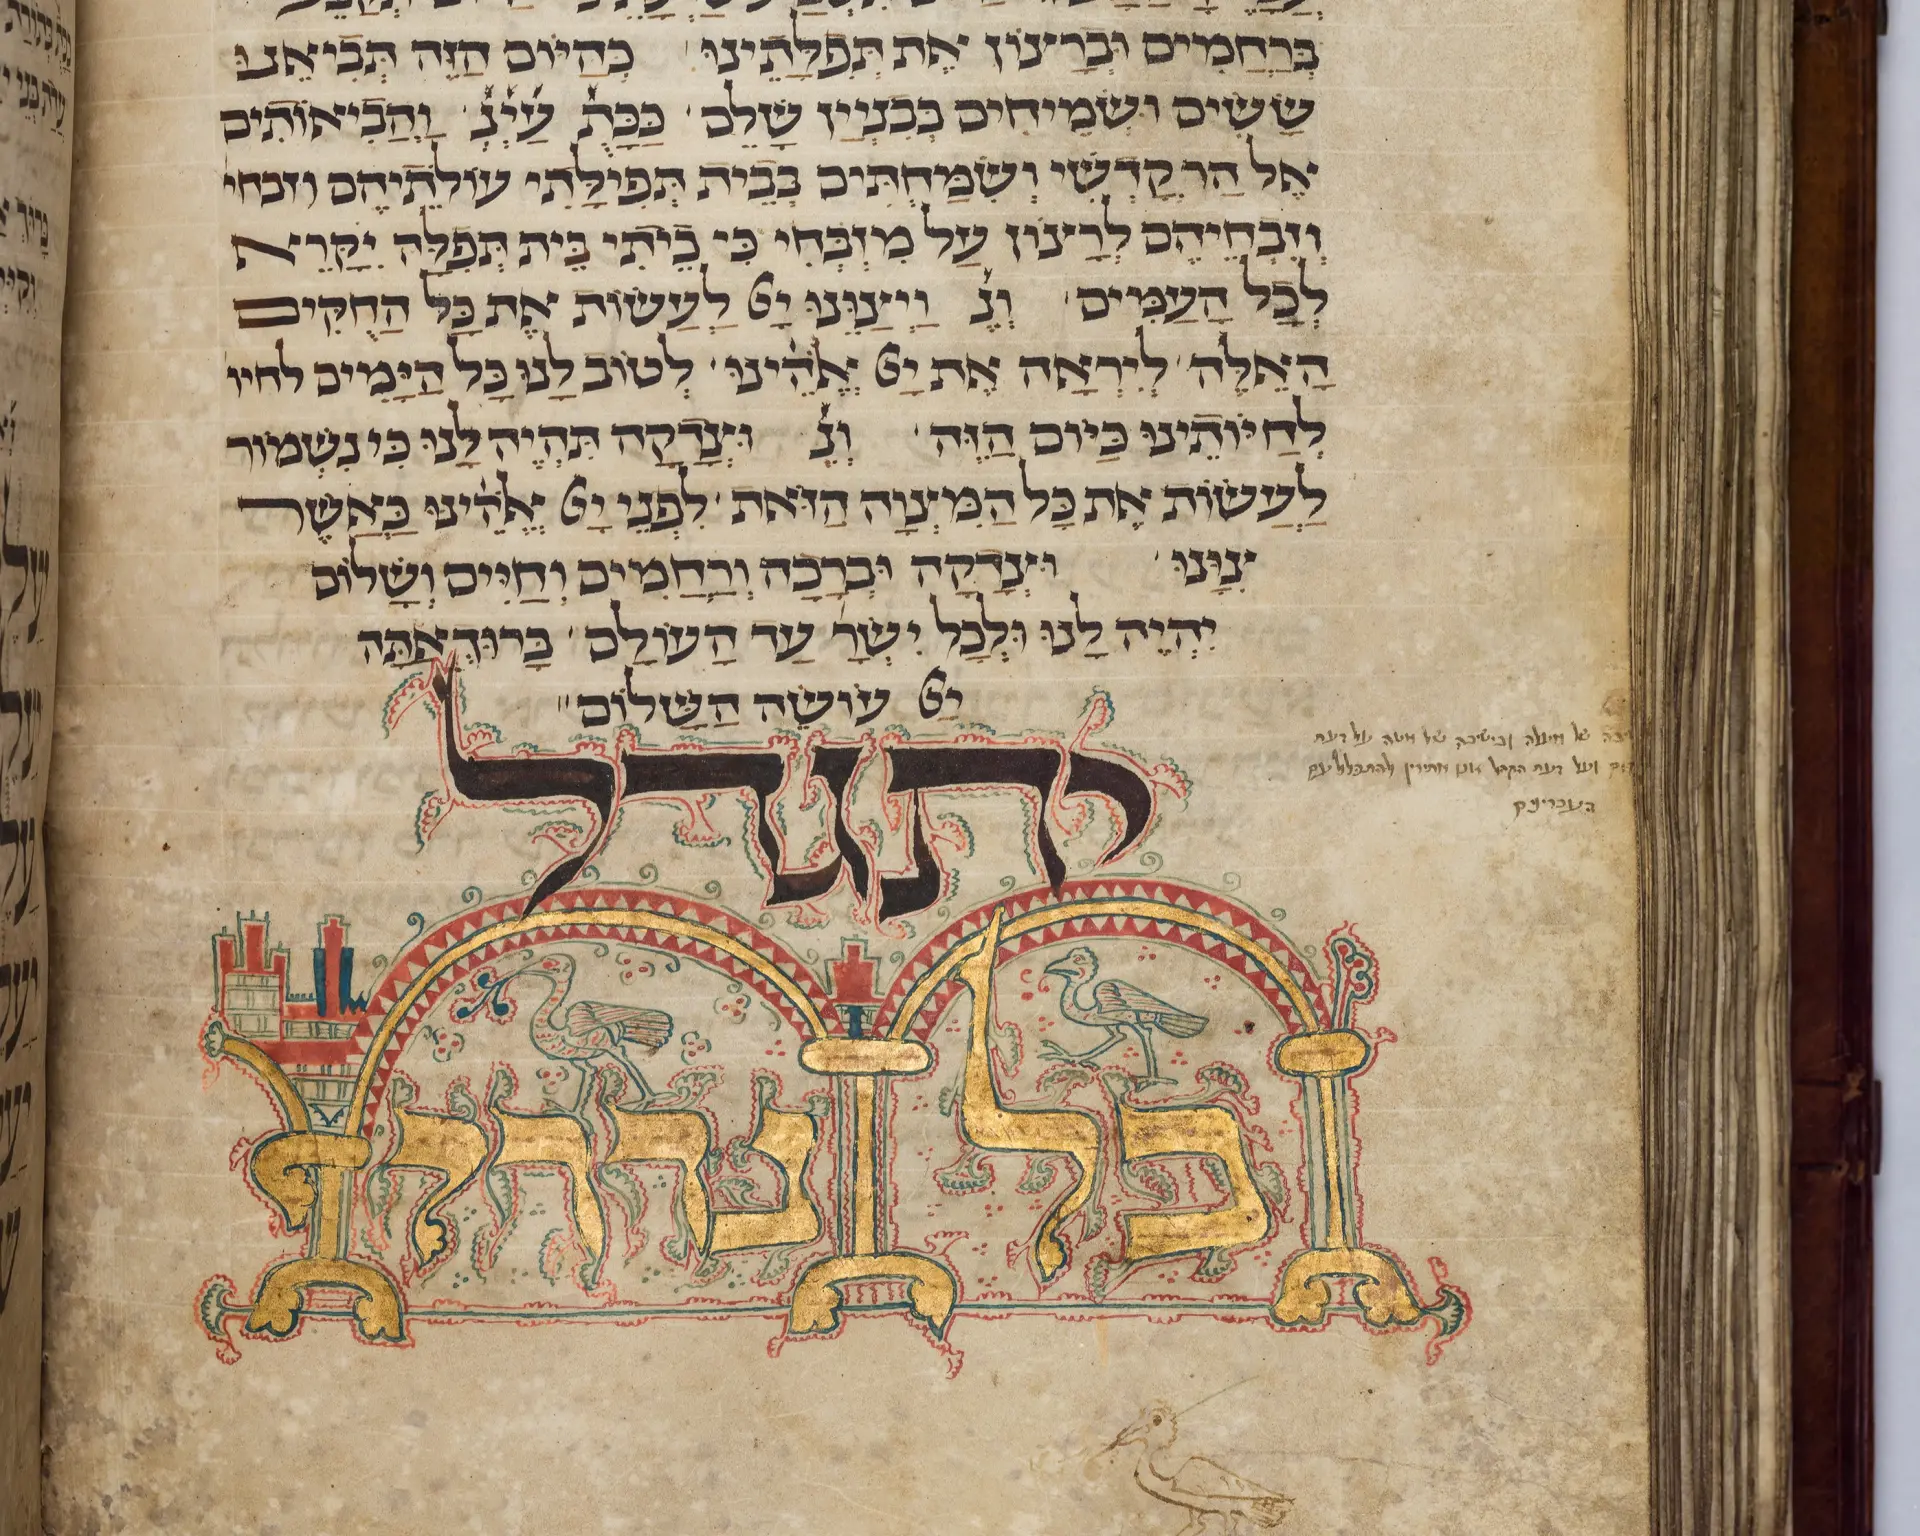 בְּרַחֲמִים וּבְרָצוֹן אֶת תְּפִלָּתֵינוּ כְּהַיּוֹם הַזֶּה תְּבִיאֵנוּ
שָׂשִׂים וּשְׂמֵיחִים כְּבִנְיַין שָׁלֵם כַּכָּת עַיְ נְ וַהֲבִיאוֹתִים
אֶל הַר קָדְשִׁי וְשִׂמַּחְתִּים בְּבֵית תְּפִילָּתִי עוֹלֹתֵיהֶם וזבחי
וְזִבְחֵיהֶם לְרָצוֹן עַל מִזְבְּחִי כִּי בֵיתִי בֵּית תְּפִלָּה יִקָּרֵא
לְכָל הָעַמִּים וְנֶ וַיְצַוֵּנוּ יָי לַעֲשׂוֹת אֶת כָּל הַחֻקִּים
הָאֵלֶּה לְיִרְאָה אֶת יָי אֱלֹהֵינוּ לְטוֹב לָנוּ כָּל הַיָּמִים לחיו
לְחַיּוֹתֵינוּ כַּיּוֹם הַזֶּה וְנֶ וּצְדָקָה תִּהְיֶה לָּנוּ כִּי נִשְׁמוֹר
לַעֲשׂוֹת אֶת כָּל הַמִּצְוָה הַזֹּאת לִפְנֵי יָי אֱלֹהֵינוּ כַּאֲשֶׁר
צִוָּנוּ וּצְדָקָה וּבְרָכָה וְרַחֲמִים וְחַיִּים וְשָׁלוֹם
יִהְיֶה לָנוּ וּלְכָל יִשְׂרָ עַד הָעוֹלָם בָּרוּךְ אַתָּה
יָי עוֹשֶׂה הַשָּׁלוֹם
יתגדל
כל נדרי
של מעלה ובישיבה של מטה על דעת
ועל דעת הקהל אנו מתירין להתפלל עם
העבריינים